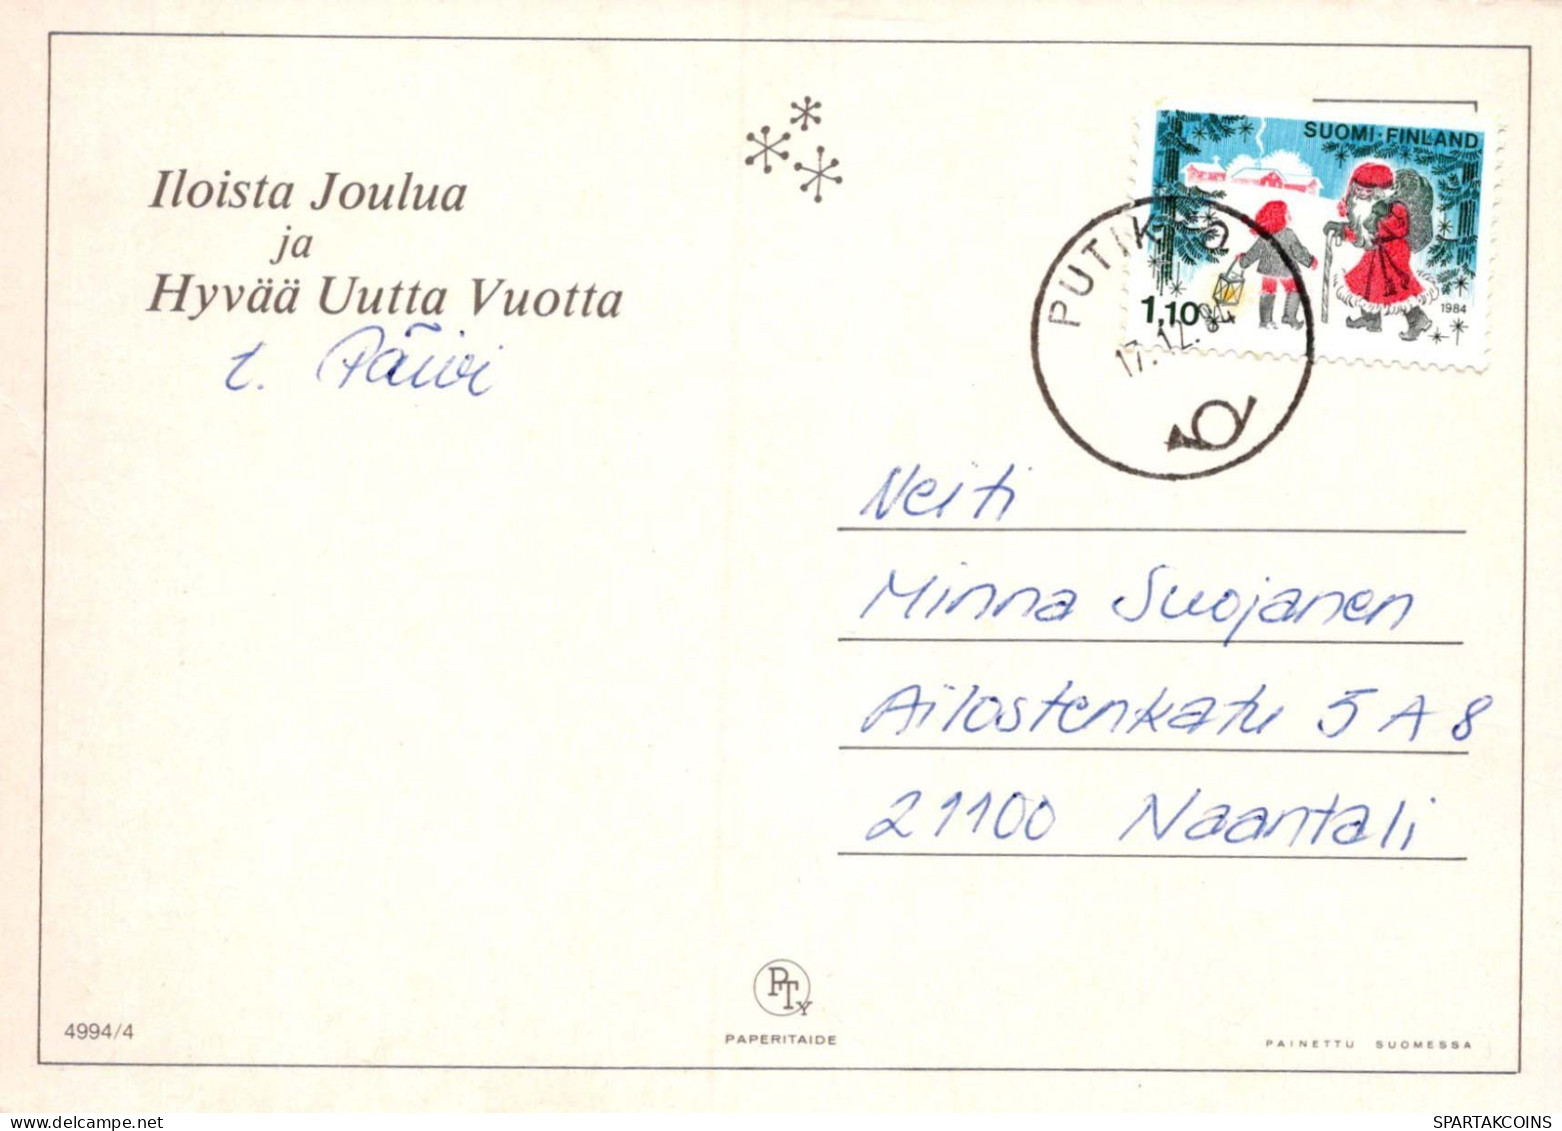 Iloista Joulua
ja
Hyvää Uutta Vuotta
t. Päivi
SUOMI-FINLAND
1,10
1984
PUTIKKO
17.12.84
Neiti
Minna Suojanen
Ailostenkatu 5 A 8
21100 Naantali
PTY
PAPERITAIDE
4994/4
PAINETTU SUOMESSA
delcampe.net
SPARTAKCOINS